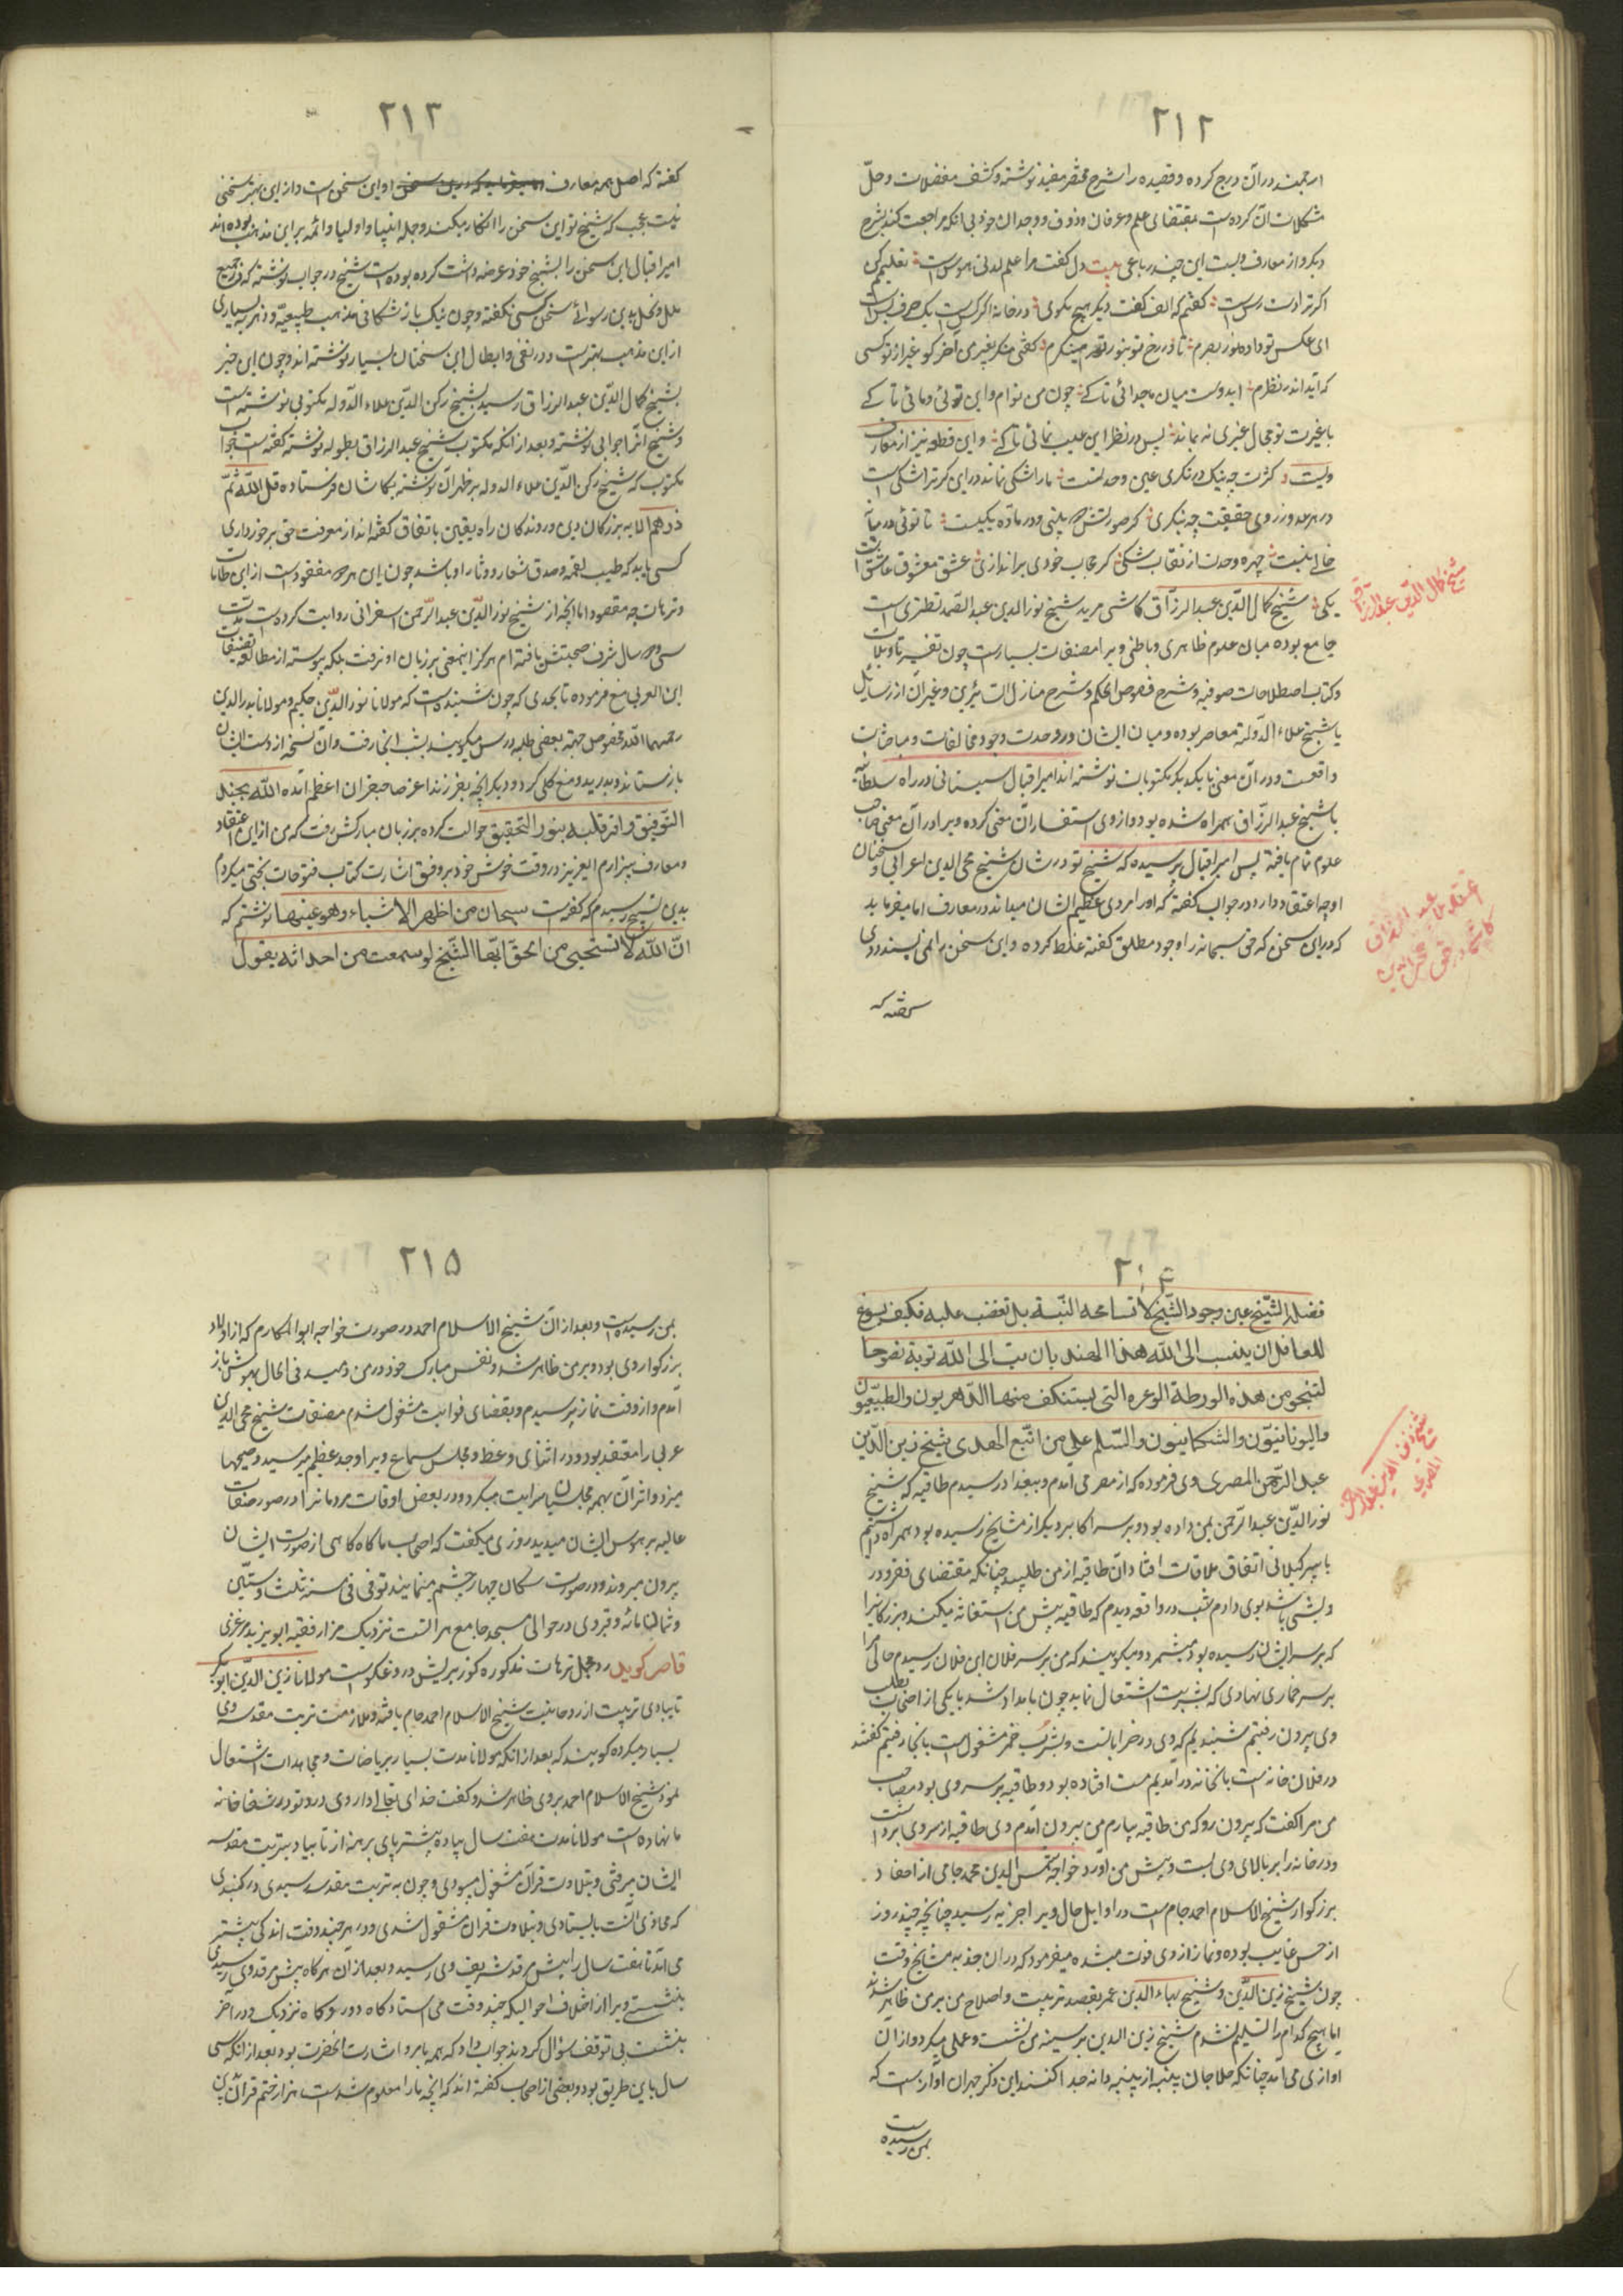 ۲۱۲
ارجمند در آن درج کرده و قصیده را شرح مختصر مفید نوشته و کشف معضلات و حلّ
مشکلات آن کرده است بمقتضای علم و عرفان و ذوق و وجدان خود بی آنکه مراجعت کند بشرح
دیگر و از معارف ویست این چند رباعی بیت دل گفت مرا علم لدنی هوس است تعلیم کن
اگر ترا دست رس است گفتم که الف گفت دیگر هیچ مگوی در خانه اگر کس است یک حرف بس است
ای عکس تو داده نور بصرم تا در رخ تو بنور تو مینگرم گفتی منگر بغیر من آخر کو غیر از تو کسی
که آید اندر نظرم ایدوست میان ما جدائی تا کی چون من توام و این توئی و مائی تا کی
با غیرت تو مجال غیری نه بماند پس در نظر این غیب نمائی تا کی و این قطعه نیز از معارف
ویست کثرت چه نیک درنگری عین وحدتست ما را شکی نماند در این گر ترا شکی است
در هر عدد ز روی حقیقت چه بنگری گر صورتش به بینی ور ماده یکیست تا توئی در میانه
خالی نیست چهره وحدت از نقاب شکی گر حجاب خودی براندازی عشق معشوق عاشق است
یکی شیخ کمال الدّین عبد الرزاق کاشی مرید شیخ نور الدین عبد الصمد نطنزی است
جامع بوده میان علوم ظاهری و باطنی و ویرا مصنفات بسیار است چون تفسیر تاویلات
و کتاب اصطلاحات صوفیه و شرح فصوص الحکم و شرح منازل السائرین و غیر آن از رسایل
با شیخ علاء الدّوله معاصر بوده و میان ایشان در وحدت وجود مخالفات و مباحثات
واقعست و در آن معنی با یکدیگر مکتوبات نوشته اند امیر اقبال سیستانی در راه سلطانیه
با شیخ عبد الرزّاق همراه شده بود و از وی استفسار آن معنی کرده ویرا در آن معنی صاحب
علوم تمام یافته پس امیر اقبال پرسیده که شیخ تو در شان شیخ محی الدین اعرابی و سخنان
او چه اعتقاد دارد در جواب گفته که او را مردی عظیم الشان میداند در معارف اما میفرماید
که در این سخن که حق سبحانه را وجود مطلق گفته غلط کرده و این سخن را نمی پسندد وی
گفته که
شیخ کمال الدّین عبد الرزاق
اعتقاد عبد الرزاق
کاشی در حق محی الدین
۲۱۳
گفته که اصل همه معارف او این سخن است و از این بهتر سخنی
نیست عجب که شیخ تو این سخن را انکار میکند و جمله انبیا و اولیا و ائمه بر این مذهب بوده اند
امیر اقبال این سخن را بشیخ خود عرضه داشت کرده بوده است شیخ در جواب نوشته که در جمیع
ملل و نحل بدین رسوائی سخن کسی نگفته و چون نیک باز شکافی مذهب طبیعیّه و دهریه بسیاری
از این مذهب بهتر است و در نفی و ابطال این سخنان بسیار نوشته اند و چون این خبر
بشیخ کمال الدّین عبد الرزاق رسید بشیخ رکن الدّین علاء الدّوله مکتوبی نوشته است
و شیخ آنرا جوابی نوشته و بعد از آنکه مکتوب شیخ عبد الرزاق بطوله نوشته گفته است جواب
مکتوب که شیخ رکن الدّین علاء الدوله بر ظهر آن نوشته بکاشان فرستاده قل الله ثمّ
ذرهم الایه بزرگان دین و روندگان راه یقین باتفاق گفته اند از معرفت حق برخورداری
کسی یابد که طیب لقمه و صدق شعار و دثار او باشد چون این هر دو مفقود است از این طامات
و ترهات چه مقصود اما آنچه از شیخ نور الدّین عبد الرّحمن اسفراینی روایت کرده است مدّت
سی و دو سال شرف صحبتش یافته ام هرگز این معنی بر زبان او نرفت بلکه پیوسته از مطالعه تصنیفات
ابن العربی منع فرموده تا بحدی که چون شنیده است که مولانا نور الدّین حکیم و مولانا بدر الدین
رحمهما الله فصوص جهة بعضی طلبه درس میگویند بشب آنجا رفت و آن نسخه از دست ایشان
بازستاند و بدرید و منع کلی کرد و دیگر آنچه بفرزند اعز صاحبقران اعظم ایّده الله بجند
التوفیق و اقر قلبه بنور التحقیق حوالت کرده بر زبان مبارکش رفت که من از این اعتقاد
و معارف بیزارم ایعزیز در وقت خوش خود بر وفق اشارت کتاب فتوحات محشی میکردم
بدین تسبیح رسیدم که گفته است سبحان من اظهر الاشیاء و هو عینها نوشتم که
انّ الله لا تستحیی من الحقّ ایّها الشّیخ لو سمعت من احد انّه یقول
۲۱۴
فضلة الشّیخ عین وجود الشّیخ لا تسامحه البتّة بل تغضب علیه فکیف یسوغ
للعاقل ان ینسب الی الله هذا الهذیان تب الی الله توبة نصوحا
لتنجو من هذه الورطة الوعرة التی یستنکف منها الدّهریون و الطبیعیّون
و الیونانیّون و الشکمانیون و السّلم علی من اتّبع الهدی شیخ زین الدّین
عبد الرّحمن المصری وی فرموده که از مصر می آمدم و ببغداد رسیدم طاقیه که شیخ
نور الدّین عبد الرّحمن بمن داده بود و بر سر اکابر دیگر از مشایخ رسیده بود همراه داشتم
با پیر گیلانی اتفاق ملاقات افتاد آن طاقیه از من طلبید چنانکه مقتضای فقر و در
ویشی باشد بوی دادم شب در واقعه دیدم که طاقیه پیش من استغاثه میکند و بزرگانیرا
که بر سر ایشان رسیده بود میشمرد و میگویند که من بر سر فلان ابن فلان رسیدم حالی مرا
بر سر خماری نهادی که بشربت اشتعال نماید چون بامداد شد با یکی از اصحاب بطلب
وی بیرون رفتیم شنیدیم که وی در خراباتست و بشرب خمر مشغول است بآنجا رفتیم گفتند
در فلان خانه است بآنخانه در آمدیم مست افتاده بود و طاقیه بر سر وی بود مصاحب
من مرا گفت که بیرون رو که من طاقیه بیارم من بیرون آمدم وی طاقیه از سر وی برداشت
و در خانه را بر بالای وی بست و پیش من آورد خواجه شمس الدین محمد جامی از احفاد
بزرگوار شیخ الاسلام احمد جام است در اوایل حال ویرا جذبه رسید چنانچه چند روز
از حس غایب بوده و نماز از وی فوت میشده میفرمود که در آن جذبه مشایخ وقت
چون شیخ زین الدّین و شیخ بهاء الدین عمر بقصد تربیت و اصلاح من بر من ظاهر شدند
اما هیچ کدام را تسلیم نشدم شیخ زین الدین بر سینه من نشست و عملی میکرد و از آن
آوازی می آمد چنانکه حلاجان پنبه از پنبه دانه جدا کنند این ذکر جبران آواز است که
بمن رسیده است
شیخ زین الدین عبد الرحمن
المصری
۲۱۵
بمن رسیده است و بعد از آن شیخ الاسلام احمد در صورت خواجه ابوالمکارم که از اولاد
بزرگوار وی بود و بر من ظاهر شد و نفس مبارک خود در من دمید فی الحال بهوش باز
آمدم و از وقت نماز پرسیدم و بقضای فوایت مشغول شدم مصنفات شیخ محی الدین
عربی را معتقد بود و در اثنای وعظ و مجلس سماع ویرا وجد عظیم میرسید و صیحها
میزد و اثر آن بهمه مجلسیان سرایت میکرد و در بعض اوقات مردمانرا در صور صفات
عالیه بر هوس ایشان میدید روزی میگفت که اصحاب ما گاه گاهی از صورت ایشان
بیرون میروند و در صورت سگان چهار چشم مینمایند توفی فی سنة ثلث و ستّین
و ثمانمائه و قبر وی در حوالی مسجد جامع هراتست نزدیک مزار فقیه ابو یزید مرغزی
قاصر گوید رد مجمل ترهات مذکوره کوزیر لیش دروغکو است مولانا زین الدّین ابوبکر
تایبادی تربیت از روحانیت شیخ الاسلام احمد جام یافته و ملازمت تربت مقدسه وی
بسیار میکرده گویند که بعد از آنکه مولانا مدت بسیار بریاضات و مجاهدات اشتغال
نمود شیخ الاسلام احمد بر وی ظاهر شد و گفت خدای تعالی داروی درد تو در شفاخانه
ما نهاده است مولانا مدت هفت سال پیاده بیشتر پای برهنه از تایباد بتربت مقدسه
ایشان میرفتی و بتلاوت قرآن مشغول میبودی و چون به تربت مقدسه رسیدی در گنبدی
که محاذی آنست بایستادی و بتلاوت قران مشغول شدی و در هر چند وقت اندکی پیشتر
می آمد تا هفت سال را پیش مرقد شریف وی رسید و بعد از آن هرگاه پیش مرقد وی رسیدی
بنشستی ویرا از اختلاف احوالیکه چند وقت می استاد گاه دور و گاه نزدیک و در آخر
بنشست بی توقف سؤال کردند جواب داد که همه بامر و اشارت آنحضرت بود بعد از آنکه سی
سال باین طریق بود و بعضی از اصحاب گفته اند که آنچه ما را معلوم شده است هزار ختم قرآن پن